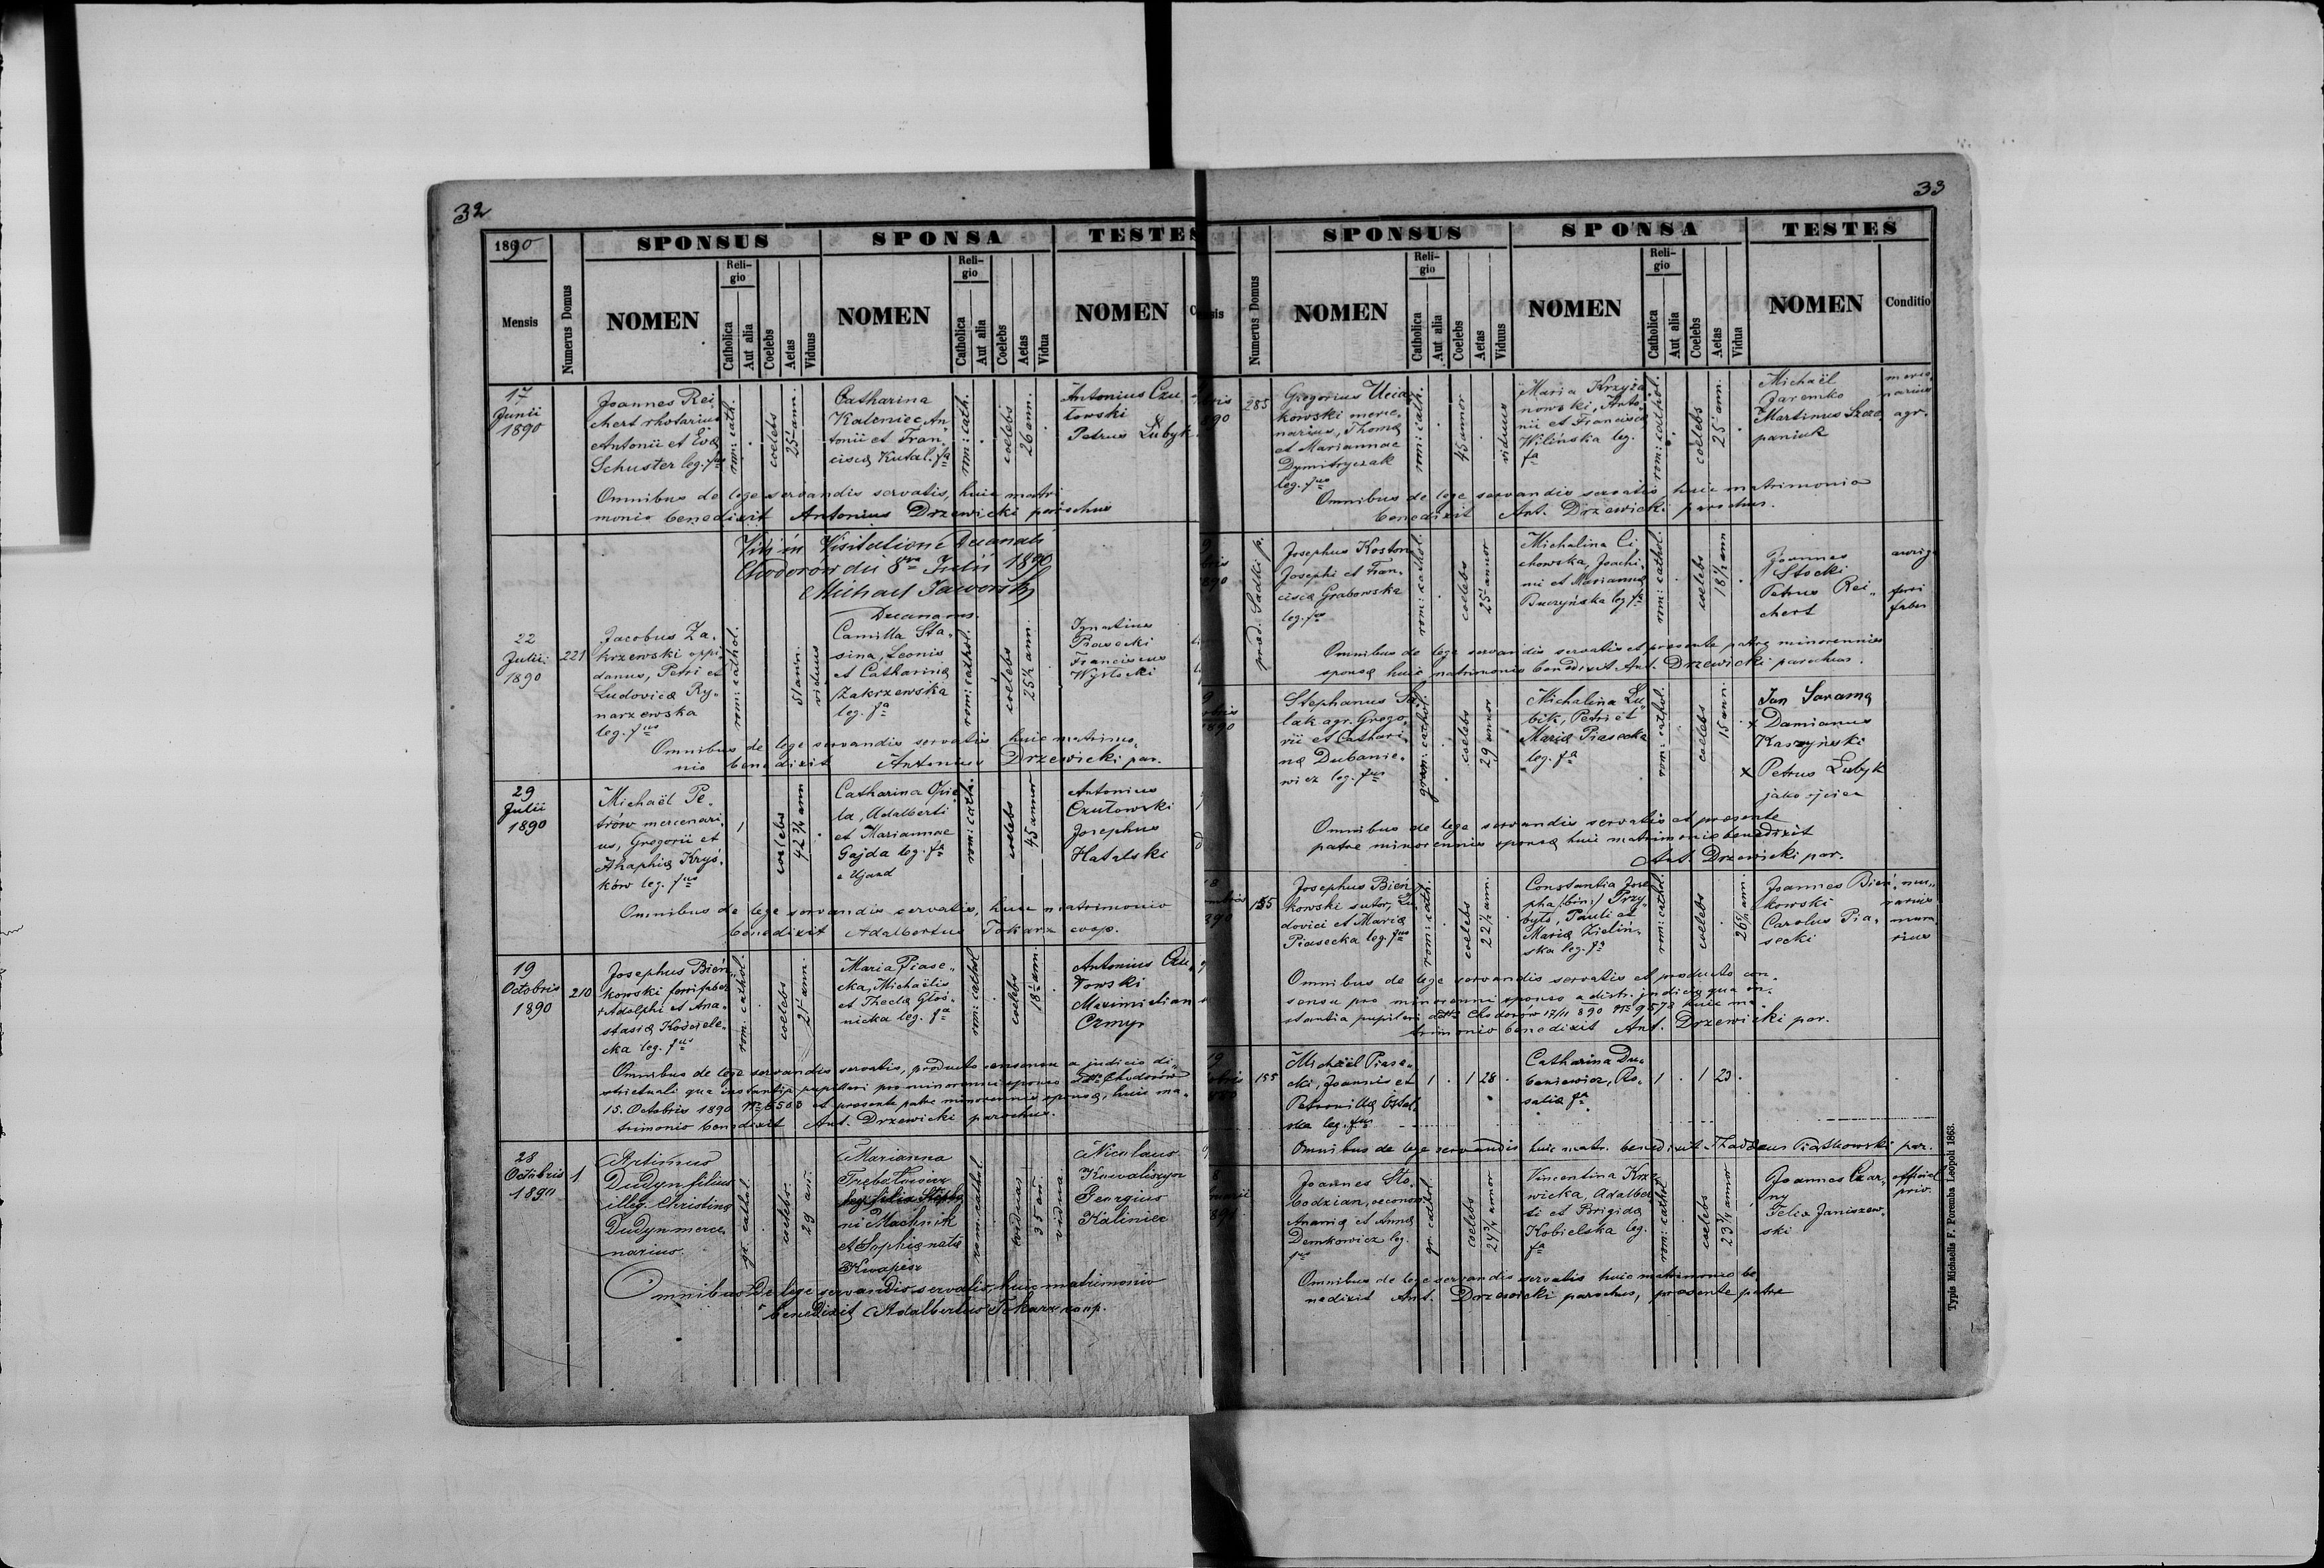 32
1890
Mensis
Numerus Domus
SPONSUS
SPONSA
TESTES
NOMEN
Reli-
gio
Catholica
Aut alia
Coelebs
Aetas
Viduus
NOMEN
Reli-
gio
Catholica
Aut alia
Coelebs
Aetas
Vidua
NOMEN
17
Junii
1890
Joannes Rei
chert rhotarius
Antonii et Eva
Schuster leg. fus
rom: cath.
coelebs
25 ann.
Catharina
Kaleniec, An
tonii et Fran-
cisca Kutal. fa
rom: cath.
coelebs
26 ann.
Antonius Czu
towski
Petrus Lubyk
Omnibus de lege servandis servatis, huic matri
monio benedixit Antonius Drzewicki parochus
Visitatione Decanali
Chodorów die 8va Julii 1890
Michael Jaworski
Decanus
22
Julii
1890
221
Jacobus Za-
krzewski oppi
danus, Petri et
Ludovica Ry-
narzewska
leg. fus
rom: cathol.
51 ann.
viduus
Camilla Sta-
sina, Leonis
et Catharina
Zakrzewska
leg. fa
rom: cathol.
coelebs
25½ ann.
Ignatius
Piasecki
Franciscus
Wysłocki
Omnibus de lege servandis servatis huic matrimo-
nio benedixit Antonius Drzewicki par.
29
Julii
1890
Michaël Pe-
trów mercenari-
us, Gregorii et
Ahaphia Kryś-
ków leg. fus
1
coelebs
42 ¾ ann
Catharina
la, Adalberti
et Mariannae
Gajda leg. fa
e Ujazd
rom: cath.
coelebs
45 annor
Antonius
Czułowski
Josephus
Hatalski
Omnibus de lege servandis servatis, huic matrimonio
benedixit Adalbertus Tokarz coop.
19
Octobris
1890
210
Josephus Bień-
kowski ferrifaber
Adolphi et Ana-
stasia Kościele-
cka leg. fus
rom: cathol.
coelebs
21 ann.
Maria Piase-
cka, Michaëlis
et Thecla Głoś-
nicka leg. fa
rom: cathol
coelebs
18½ ann
Antonius Czu-
towski
Maximilian
Czmyr
Omnibus de lege servandis servatis, producto consensu a judicio di-
strictuali qua instantia pupillari pro minorenni sponso ddto Chodorów
15. Octobris 1890 Nro 8503 et praesente patre minorennis sponsa, huic ma-
trimonio benedixit Ant. Drzewicki parochus.
28
Octobris
1890
1
Artimus
Dudyn filius
illeg. Christina
Dudyn merce
narius
gr. cathol
coelebs
29 an.
Marianna
leg filia Stepha
ni Machnik
et Sophia nata
Kwapisz
rom: cathol
35 an.
vidua
Nicolaus
Kowaliszyn
Georgius
Kaliniec
Omnibus de lege servandis servatis, huic matrimonio
benedixit Adalbertus Tokarz coop.
33
sis
Numerus Domus
SPONSUS
SPONSA
TESTES
NOMEN
Reli-
gio
Catholica
Aut alia
Coelebs
Aetas
Viduus
NOMEN
Reli-
gio
Catholica
Aut alia
Coelebs
Aetas
Vidua
NOMEN
Conditio
bris
890
285
Gregorius Ucia
kowski merce-
narius, Thoma
et Mariannae
Dymitryczak
leg. fus
rom: cath.
45 annor
viduus
Maria Krzyża
nowski, Anto-
nii et Francisca
Wilińska leg.
fa
rom: cathol.
coelebs
25 ann.
Michaël
Jaremko
Martinus Szcze
paniuk
merce
narius
agr.
Omnibus de lege servandis servatis huic matrimonio
benedixit Ant. Drzewicki parochus.
9
bris
890
praed. Sadki p.
Josephus Koston
Josephi et Fran-
cisca Grabowska
leg. fus
rom: cathol.
coelebs
25 annor
Michalina Ci
chowska, Joachi-
mi et Marianna
Buczyńska leg fa
rom: cathol.
coelebs
18½ ann
Joannes
Stocki
Petrus Rei-
chert
auriga
ferri
faber
Omnibus de lege servandis servatis et praesente patre minorennis
sponsa huic matrimonio benedixit Ant. Drzewicki parochus.
9
bris
1890
Stephanus Sa
lak agr. Grego-
rii et Cathari-
na Dubanie-
wicz leg. fus
coelebs
29 annor
Michalina Lu-
bik, Petri et
Maria Piasecka
leg. fa
rom: cathol.
coelebs
15 ann.
Jan Sarama
x Damianus
Kaszyński
x Petrus Lubyk
jako ojciec
Omnibus de lege servandis servatis et praesente
patre minorennis sponsa huic matrimonio benedixit
Ant. Drzewicki par.
8
890
155
Josephus Bień
kowski sutor, Lu
dovici et Maria
Piasecka leg. fus
rom: cath.
coelebs
22½ ann.
Constantia Jose
pha (bin.) Przy
byts, Pauli et
Maria Zieliń-
ska leg. fa
rom: cathol.
coelebs
Joannes Bień-
kowski
Carolus Pia-
secki
mu-
rarius
mura
rius
Omnibus de lege servandis servatis et producto con-
sensu pro minorenni sponso a distr. judicio qua in-
stantia pupillari ddto Chodorów 17/11 890 Nro 9573 huic ma-
trimonio benedixit Ant. Drzewicki par.
19
155
Michaël Piase-
cki, Joannis et
Petronilla
leg. fus
1
1
28
Catharina Du-
baniewicz, Ro-
salia fa
1
1
23
Omnibus de lege servandis huic matr. benedixit Thaddaeus Piątkowski par.
8
Joannes Sto-
bodzian, oeconom
Anania et Anna
Demkowicz leg.
fus
gr. cathol
coelebs
24¾ annor
Vincentina Krz
wicka, Adalber
ti et Brigida
Kobielska leg.
fa
rom: cathol
coelebs
23¾ annor
Joannes Czar-
ny
Felix Janiszew-
ski
official
priv.
Omnibus de lege servandis servatis huic matrimonio be
nedixit Ant. Drzewicki parochus, praesente patre
Typis Michaelis F. Poremba Leopoli 1863.